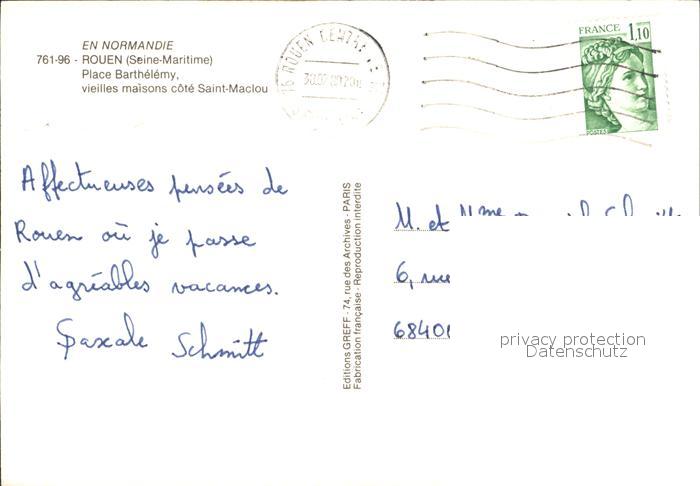 EN NORMANDIE
761-96 - ROUEN (Seine-Maritime)
Place Barthélémy,
vieilles maisons côté Saint-Maclou
ROUEN
FRANCE 1,10
POSTES
Affectueuses pensées de
Rouen où je passe
d'agréables vacances.
Pascale Schmitt
Editions GREFF - 74, rue des Archives - PARIS
Fabrication française - Reproduction interdite
M. et Mme
6, rue
68401
privacy protection
Datenschutz